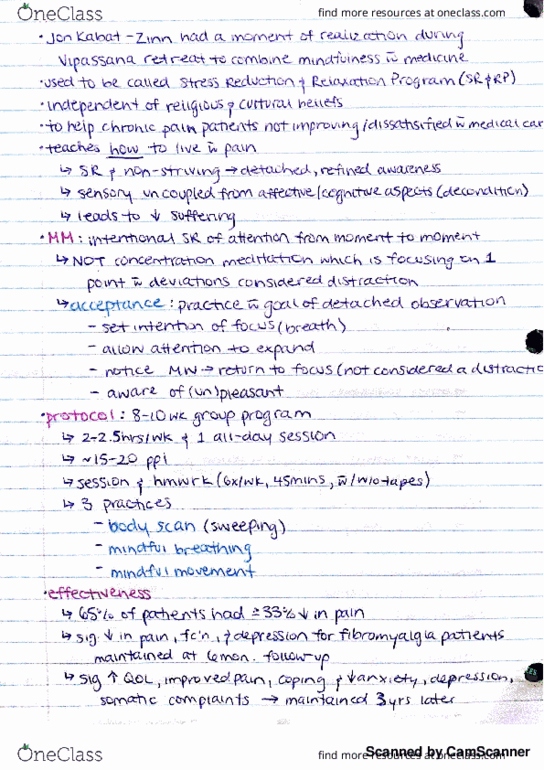 OneClass find more resources at oneclass.com
·Jon Kabat-Zinn had a moment of realization during
Vipassana retreat to combine mindfulness w̄ medicine
·used to be called Stress Reduction & Relaxation Program (SR&RP)
·independent of religious & cultural beliefs
·to help chronic pain patients not improving/dissatisfied w̄ medical car
·teaches how to live w̄ pain
↳ SR & non-striving → detached, refined awareness
↳ sensory uncoupled from affective/cognitive aspects (decondition)
↳ leads to ↓ suffering
·MM: intentional SR of attention from moment to moment
↳ NOT concentration meditation which is focusing on 1
point w̄ deviations considered distraction
↳ acceptance: practice w̄ goal of detached observation
- set intention of focus (breath)
- allow attention to expand
- notice MW → return to focus (not considered a distractio
- aware of (un)pleasant
·protocol: 8-10 wk group program
↳ 2-2.5hrs/wk & 1 all-day session
↳ ~15-20 ppl
↳ session & hmwrk (6x/wk, 45mins, w̄/w/o tapes)
↳ 3 practices
- body scan (sweeping)
- mindful breathing
- mindful movement
·effectiveness
↳ 65% of patients had ≥33% ↓ in pain
↳ sig ↓ in pain, fc'n, & depression for fibromyalgia patients
maintained at 6 mon. follow-up
↳ sig ↑ QOL, improved pain, coping & ↓ anxiety, depression,
somatic complaints → maintained 3 yrs later
OneClass find more resources at oneclass.com
Scanned by CamScanner